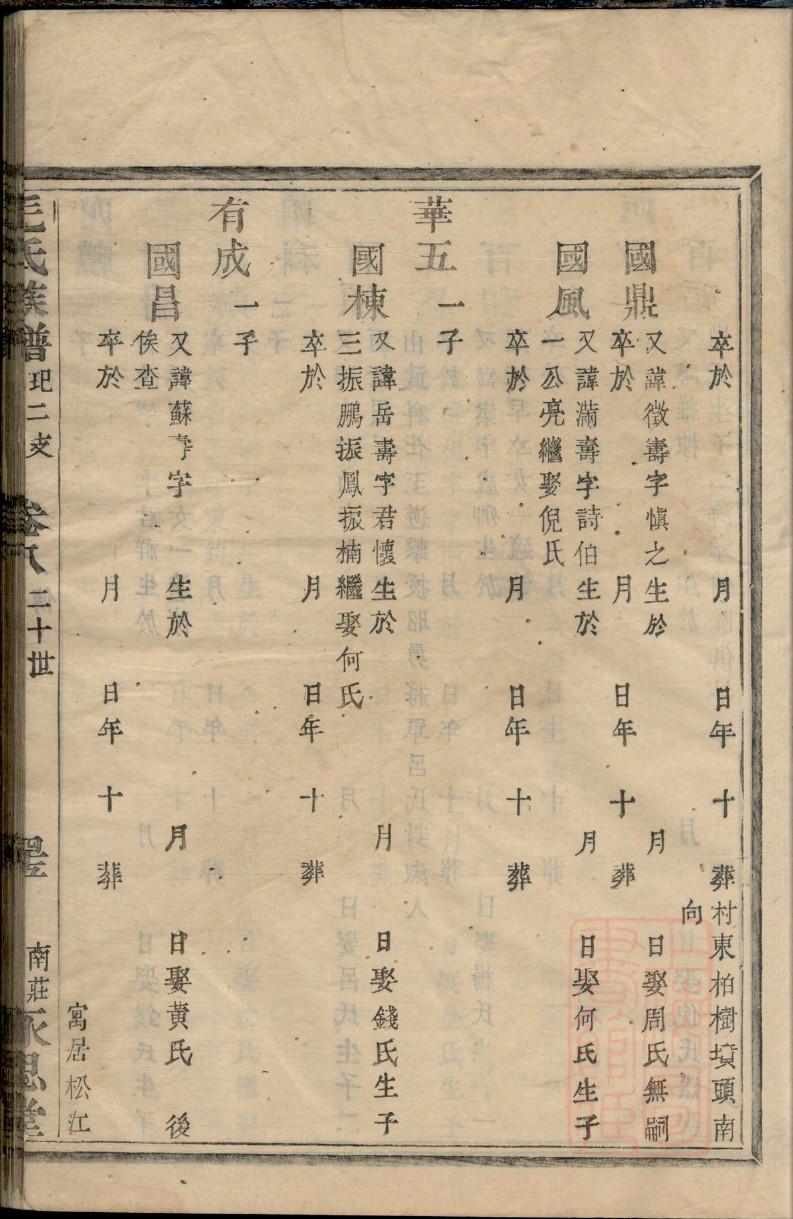 卒於 月 日年 十 葬村東柏樹墳頭南
向
國鼎 又諱徵壽字愼之生於 月 日娶周氏無嗣
卒於 月 日年 十 葬
國風 又諱滿壽字詩伯生於 月 日娶何氏生子
一公亮繼娶倪氏
卒於 月 日年 十 葬
華五 一子
國棟 又諱岳壽字君懷生於 月 日娶錢氏生子
三振鵬振鳳振楠繼娶何氏
卒於 月 日年 十 葬
有成 一子
國昌 又諱蘇壽字 生於 月 日娶黃氏 後
俟查
卒於 月 日年 十 葬
寓居松江
毛氏族譜 玘二支 卷八 二十世 南莊 永思堂